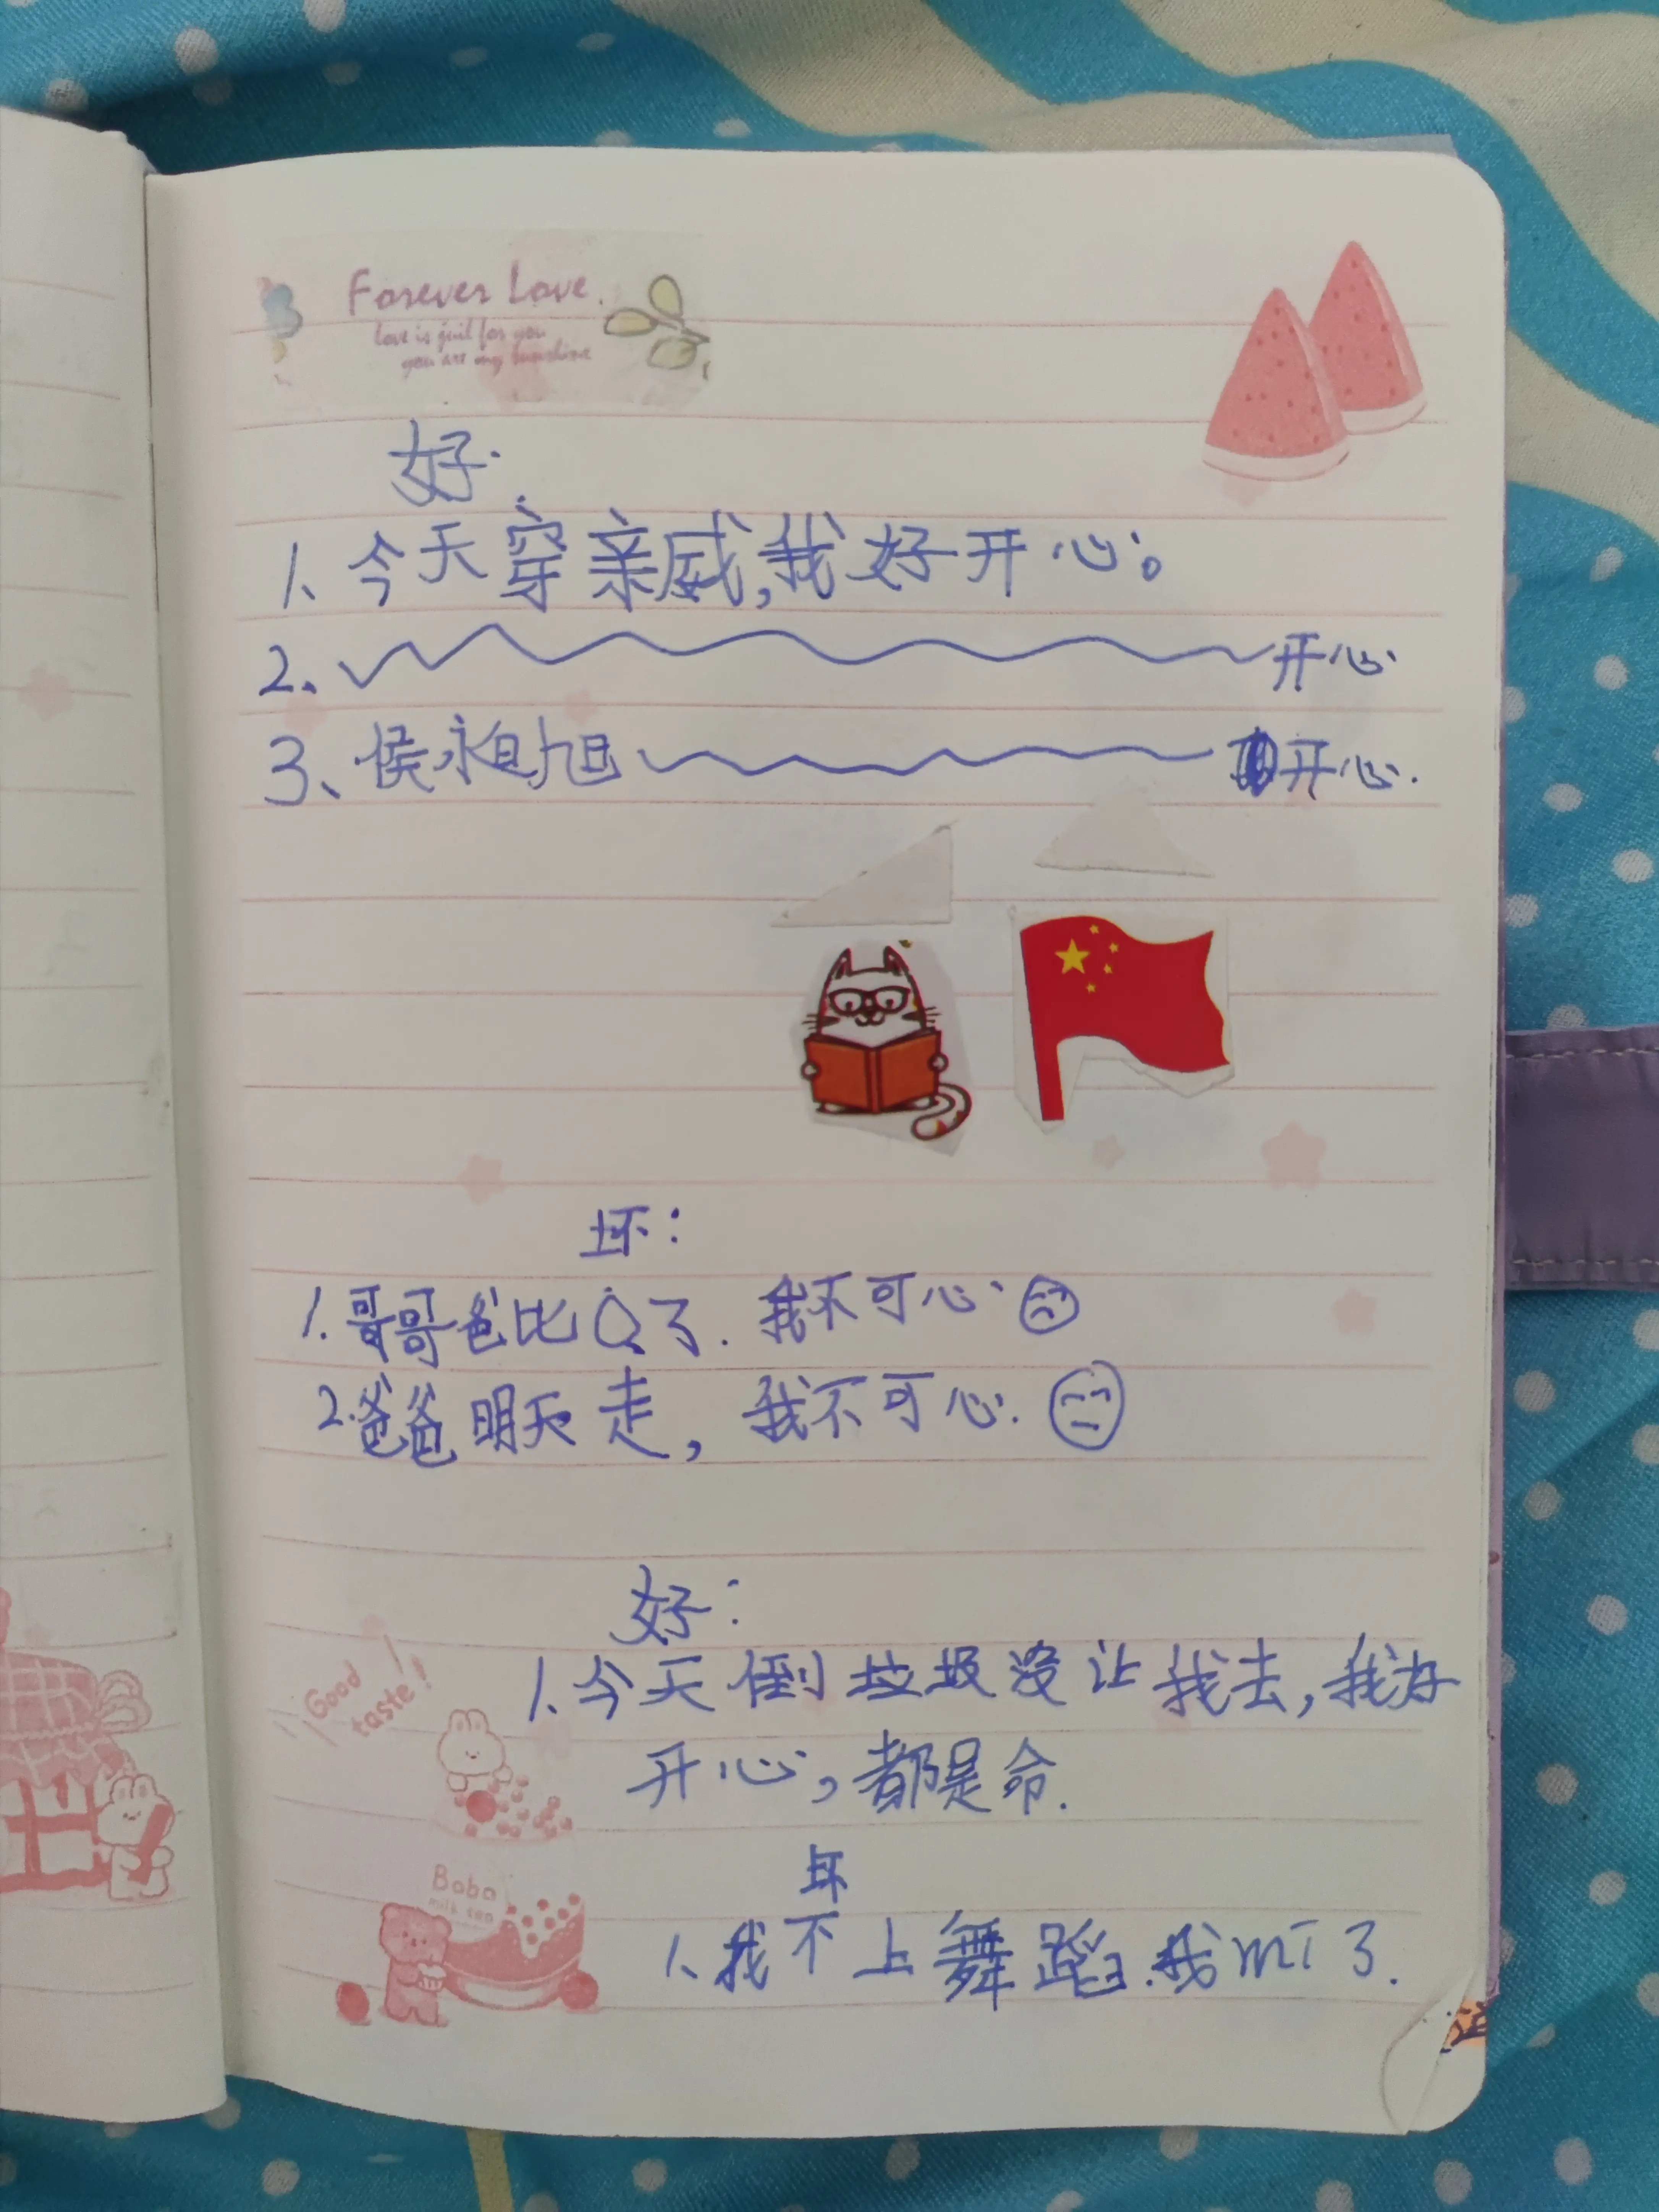 Forever Love.
love is just for you
you are my sunshine
好.
1、今天穿亲威,我好开心。
2、开心
3、侯永旭开心.
坏：
1.哥哥爸比Q了.我不可心
2.爸爸明天走，我不可心.
好：
1、今天倒垃圾没让我去，我好
开心，都是命.
Good
taste!
坏
Boba
milk tea
1、我不上舞蹈.我mT了.